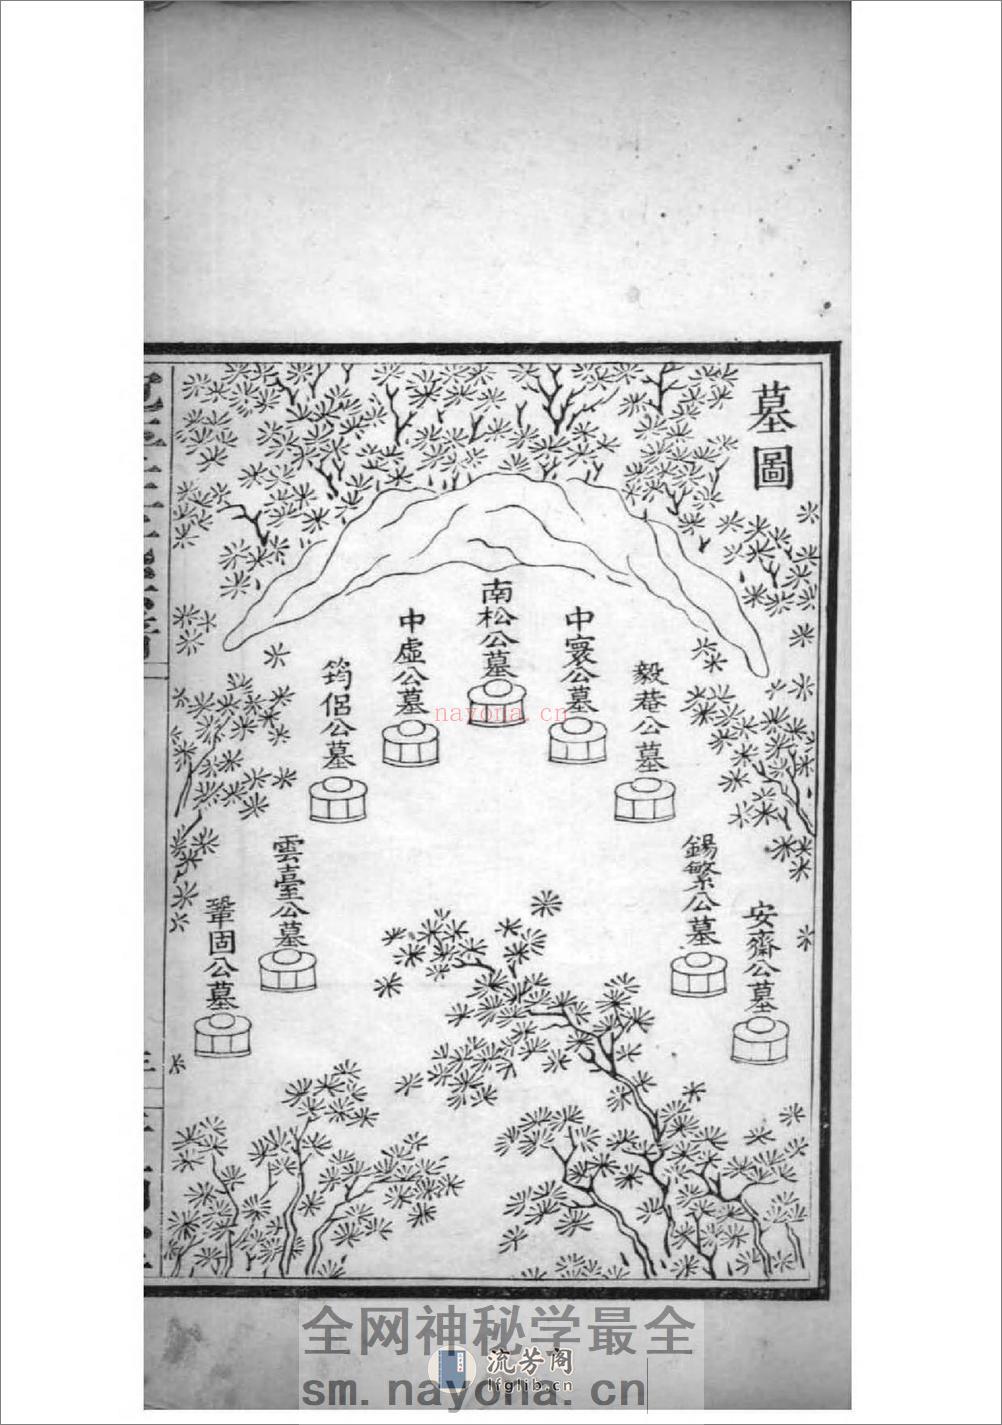 墓圖
安齋公墓
錫繁公墓
毅菴公墓
中寰公墓
南松公墓
中虛公墓
筠侶公墓
雲臺公墓
鞏固公墓
三
nayona.cn
全网神秘学最全
流芳阁
lfglib.cn
sm.nayona.cn